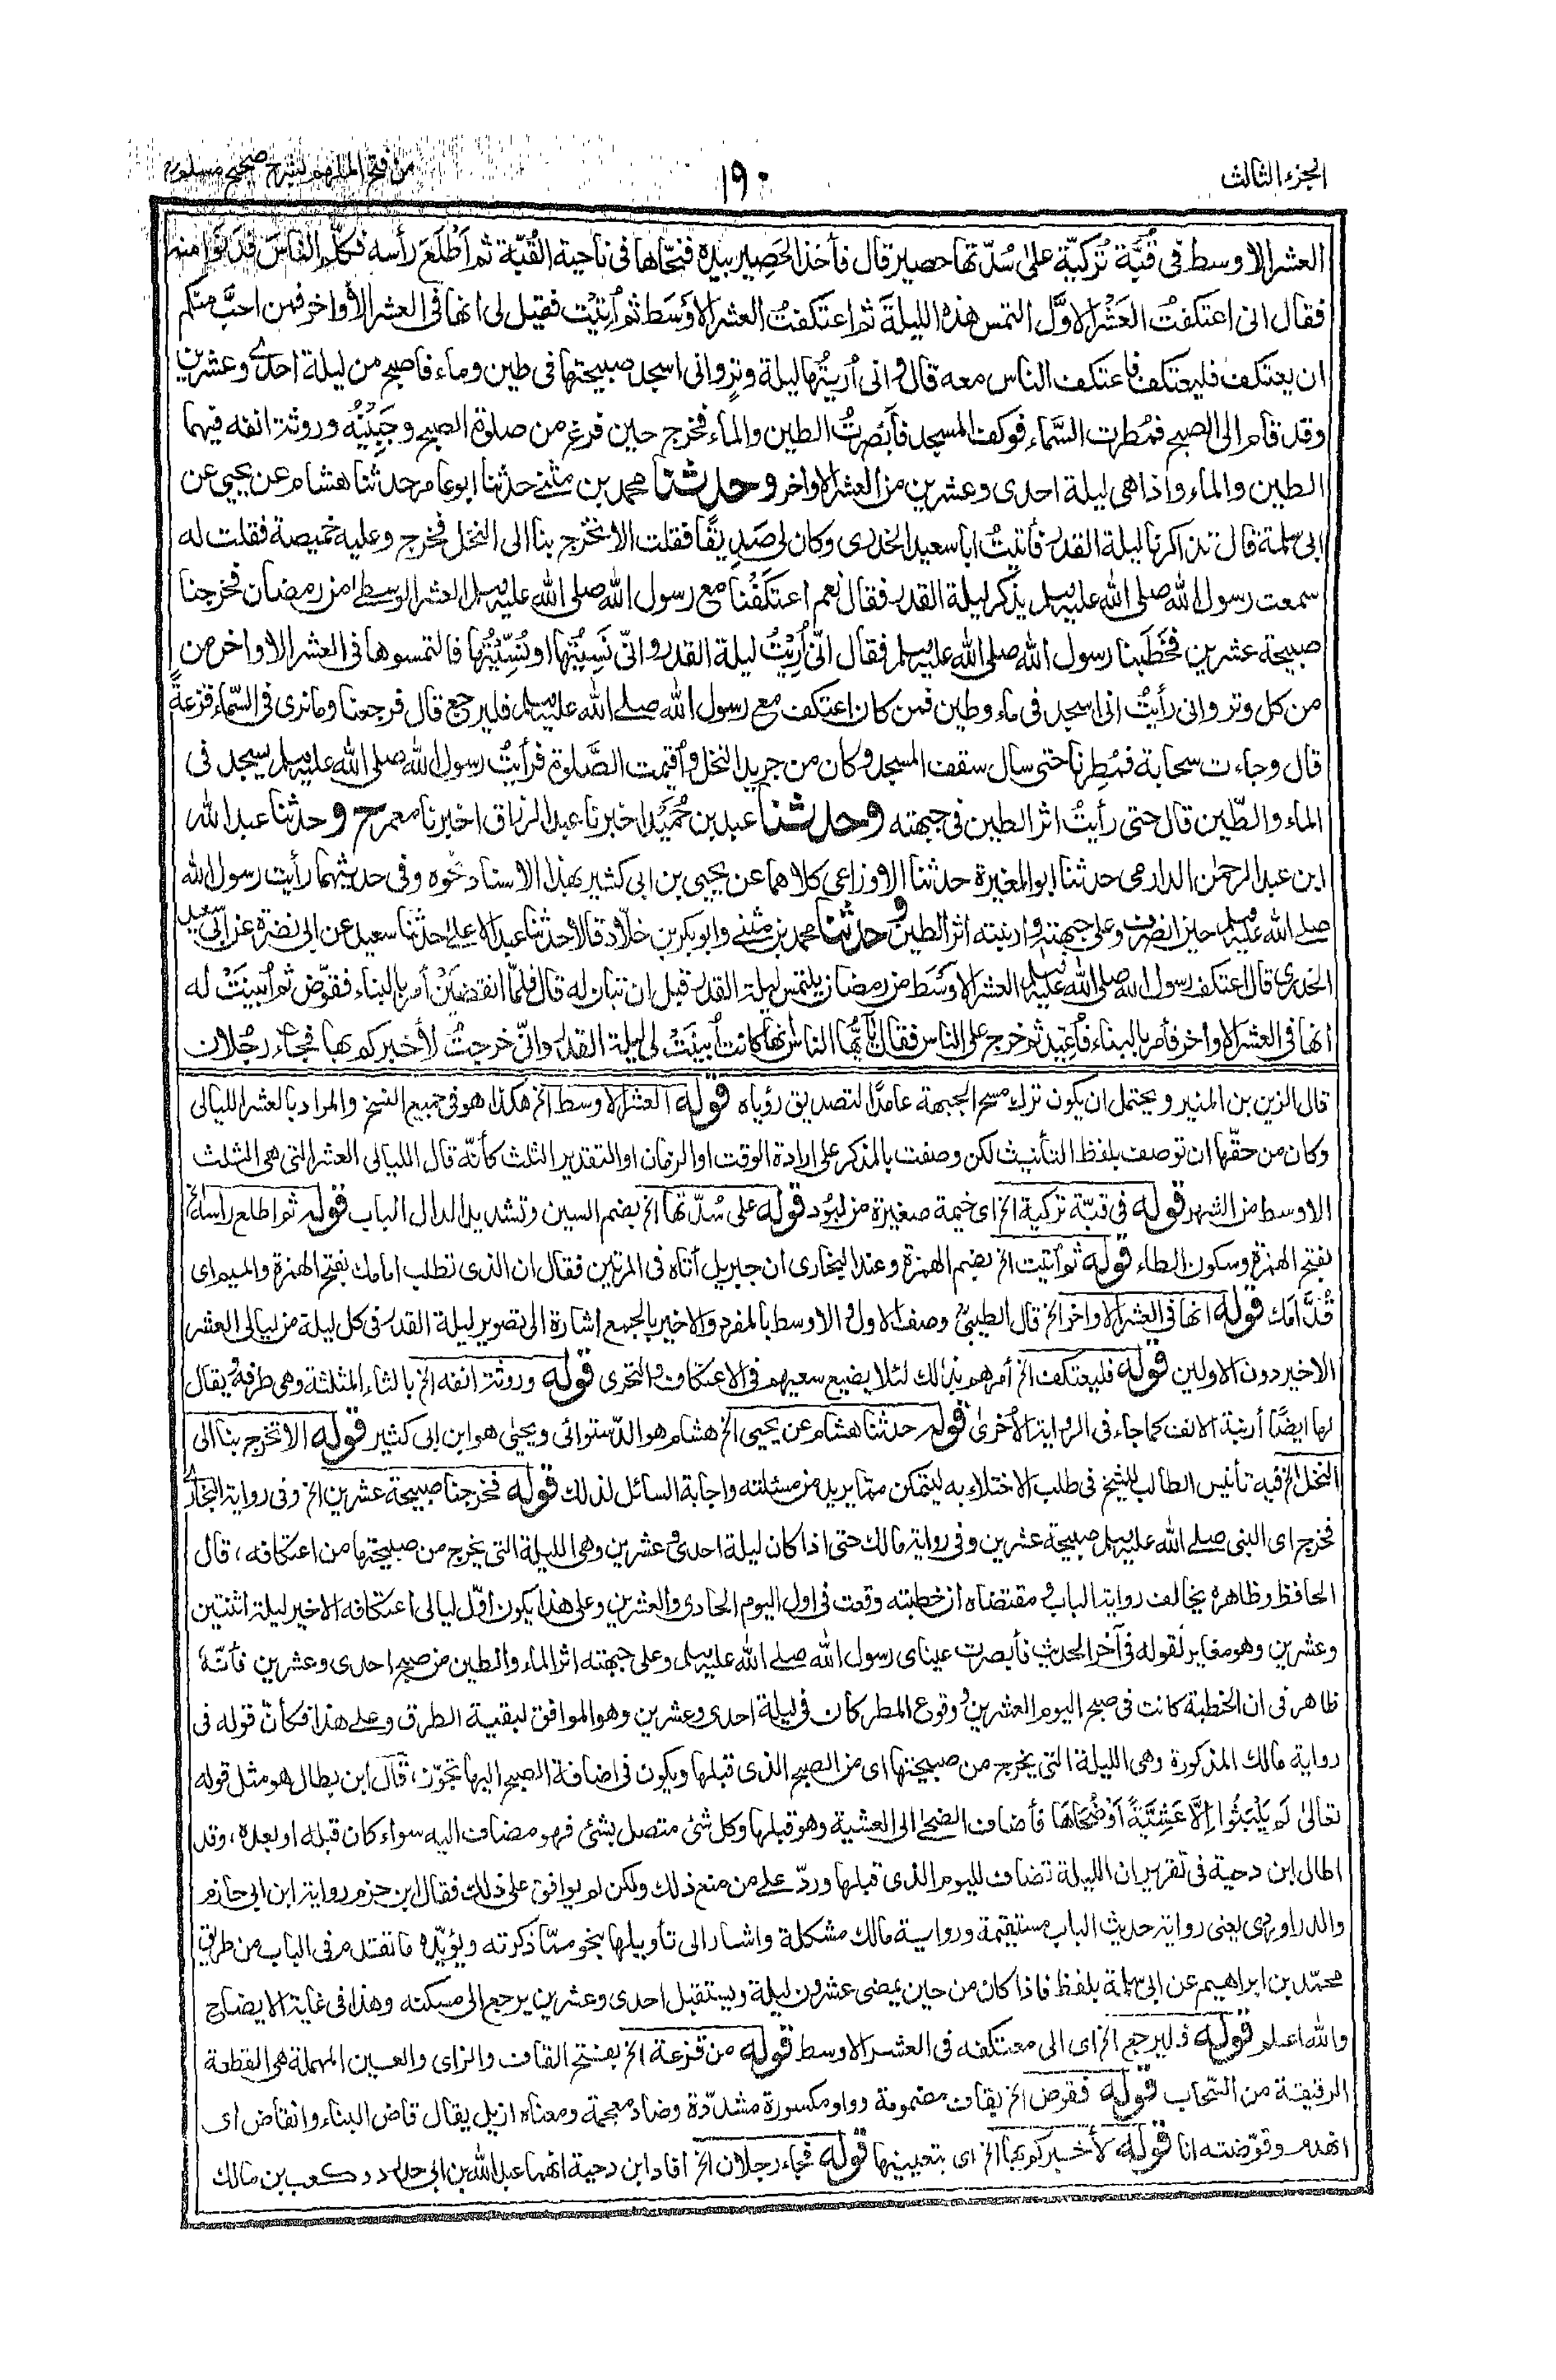 الجزء الثالث
١٩٠
من فتح الملهم لشرح صحيح مسلم
العشر الاوسط في قُبَّة تُركيّة على سُدّتها حصير قال فأخذ الحَصِير بيده فنحّاها في ناحية القُبّة ثم اَطْلَعَ رأسه فكلّم الناسَ فدَنَوا منه
فقال انى اعتكفتُ العَشْرَ الاوّل التمس هذه الليلةَ ثم اعتكفتُ العشرَ الاَوسَط ثم اُتِيْت فقيل لى انها فى العشر الأواخر فمن احبَّ منكم
ان يعتكف فليعتكف فاعتكف الناس معه قال وانى أُريتُها ليلة وترٍ وانى اسجد صبيحتها فى طين وماء فاصبح من ليلة احدى وعشرين
وقد قام الى الصبح فمُطرت السَّماء فوكف المسجد فأبْصَرتُ الطين والماء فخرج حين فرغ من صلوة الصبح وجَبِيْنُه وروثة انفه فيهما
الطين والماء واذا هى ليلة احدى وعشرين من العشر الاواخر وحدثنا محمد بن مثنى حدثنا ابو عامر حدثنا هشام عن يحيى عن
ابى سلمة قال تذاكرنا ليلة القدر فأتيتُ ابا سعيد الخدرى وكان لى صَدِيقًا فقلت الا تخرج بنا الى النخل فخرج وعليه خميصة فقلت له
سمعت رسول الله صلى الله عليه وسلم يذكر ليلة القدر فقال نعم اعتكَفْنا مع رسول الله صلى الله عليه وسلم العشر الوسطى من رمضان فخرجنا
صبيحة عشرين فخَطَبنا رسول الله صلى الله عليه وسلم فقال انّى اُرِيْتُ ليلة القدر وانّى نَسِيْتُها او نُسِّيْتُها فالتمسوها فى العشر الاواخر من
من كل وتر وانى رأيتُ انى اسجد فى ماء وطين فمن كان اعتكف مع رسول الله صلے الله عليه وسلم فليرجع قال فرجعنا وما نرى فى السّماء قزعةً
قال وجاءت سحابة فمُطِرنا حتى سال سقف المسجد وكان من جريد النخل وأُقيمت الصَّلوة فرأيتُ رسول الله صلى الله عليه وسلم يسجد فى
الماء والطّين قال حتى رأيتُ اثر الطين فى جبهته وحدثنا عبد بن حُمَيْد اخبرنا عبد الرزاق اخبرنا معمر ح وحدثنا عبد الله
ابن عبد الرحمٰن الدارمى حدثنا ابو المغيرة حدثنا الاوزاعى كلاهما عن يحيى بن ابى كثير بهذا الاسناد نحوه وفى حديثهما رأيت رسول الله
صلے الله عليه وسلم حين انصرف وعلى جبهته وارنبته اثر الطين وحدثنا محمد بن مثنى وابو بكر بن خلّاد قالا حدثنا عبد الاعلى حدثنا سعيد عن ابى نضرة عن ابى سعيد
الخدرى قال اعتكف رسول الله صلى الله عليه وسلم العشر الاَوْسَط من رمضان يلتمس ليلة القدر قبل ان تبان له قال فلمّا انقضين أمر بالبناء فقوّض ثم اُبينَتْ له
أنها فى العشر الاواخر فأمر بالبناء فأُعِيْد ثم خرج على الناس فقال يٰأَيُّها الناس انها كانت اُبينَتْ لى ليلة القدر وانّى خرجتُ لأخبركم بها فجاء رجُلان
قال الزين بن المنير ويحتمل ان يكون ترك مسح الجبهة عامدًا لتصديق رؤياه قوله العشر الاوسط الخ هكذا هو فى جميع النسخ والمراد بالعشر الليالى
وكان من حقّها ان توصف بلفظ التأنيث لكن وصفت بالمذكر على ارادة الوقت او الزمان او التقدير الثلث كأنّه قال الليالى العشر التى هى الثلث
الاوسط من الشهر قوله فى قبّة تركية الخ اى خيمة صغيرة من لبُود قوله على سُدّتها الخ بضم السين وتشديد الدال الباب قوله ثم اطلع رأسه الخ
بفتح الهمزة وسكون الطاء قوله ثم أُتيت الخ بضم الهمزة وعند البخارى ان جبريل أتاه فى المرتين فقال ان الذى تطلب امامك بفتح الهمزة والميم اى
قُدَّامَك قوله انها فى العشر الاواخر الخ قال الطيبىّ وصف الاول والاوسط بالمفرد والاخير بالجمع اشارة الى تصوير ليلة القدر فى كل ليلة من ليالى العشر
الاخير دون الاولين قوله فليعتكف الخ أمرهم بذلك لئلا يضيع سعيهم فى الاعتكاف والتحرى قوله وروثة انفه الخ بالثاء المثلثة وهى طرفه ويقال
لها ايضًا أرنبة الانف كما جاء فى الرواية الأخرىٰ قوله حدثنا هشام عن يحيى الخ هشام هو الدّستوائى ويحيٰى هو ابن ابى كثير قوله الا تخرج بنا الى
النخل الخ فيه تأنيس الطالب للشيخ فى طلب الاختلاء به ليتمكن مما يريد من مسئلته واجابة السائل لذلك قوله فخرجنا صبيحة عشرين الخ وفى رواية البخارى
فخرج اى النبى صلے الله عليه وسلم صبيحة عشرين وفى رواية مالك حتى اذا كان ليلة احدى وعشرين وهى الليلة التى يخرج من صبيحتها من اعتكافه، قال
الحافظ وظاهره يخالف رواية الباب ومقتضاه ان خطبته وقعت فى اول اليوم الحادى والعشرين وعلى هذا يكون اوّل ليالى اعتكافه الاخير ليلة اثنتين
وعشرين وهو مغاير لقوله فى آخر الحديث فأبصرت عيناى رسول الله صلے الله عليه وسلم وعلى جبهته اثر الماء والطين من صبح احدى وعشرين فأنّه
ظاهر فى ان الخطبة كانت فى صبح اليوم العشرين ووقوع المطر كان فى ليلة احدى وعشرين وهو الموافق لبقية الطرق وعلى هذا فكأنّ قوله فى
رواية مالك المذكورة وهى الليلة التى يخرج من صبيحتها اى من الصبح الذى قبلها ويكون فى اضافة الصبح اليها تجوّز، قال ابن بطال هو مثل قوله
تعالىٰ لَم يَلْبَثُوا اِلَّا عَشِيَّةً اَوْ ضُحٰهَا فأضاف الضحىٰ الى العشية وهو قبلها وكل شئ متصل بشئ فهو مضاف اليه سواء كان قبله او بعده، وقد
اطال ابن دحية فى تقرير ان الليلة تضاف لليوم الذى قبلها وردّ على من منع ذلك ولكن لم يوافق على ذلك فقال ابن حزم رواية ابن ابى حازم
والدراوردى يعنى رواية حديث الباب مستقيمة ورواية مالك مشكلة واشار الى تأويلها بنحو ممّا ذكرته ويؤيّده ما تقتدم فى الباب من طريق
محمّد بن ابراهيم عن ابى سلمة بلفظ فاذا كان من حين يمضى عشرون ليلة ويستقبل احدى وعشرين يرجع الى مسكنه وهذا فى غاية الايضاح
والله اعلم قوله فليرجع الخ اى الى معتكفه فى العشر الاوسط قوله من قزعة الخ بفتح القاف والزاى والعين المهملة هى القطعة
الرقيقة من السّحاب قوله فقوض الخ بقاف مضمومة وواو مكسورة مشدّدة وضاد معجمة ومعناه ازيل يقال قاض البناء وانقاض اى
انهدم وقوّضته انا قوله لأخبركم بها الخ اى بتعيينها قوله فجاء رجلان الخ أفاد ابن دحية انهما عبد الله بن ابى حدرد وكعب بن مالك